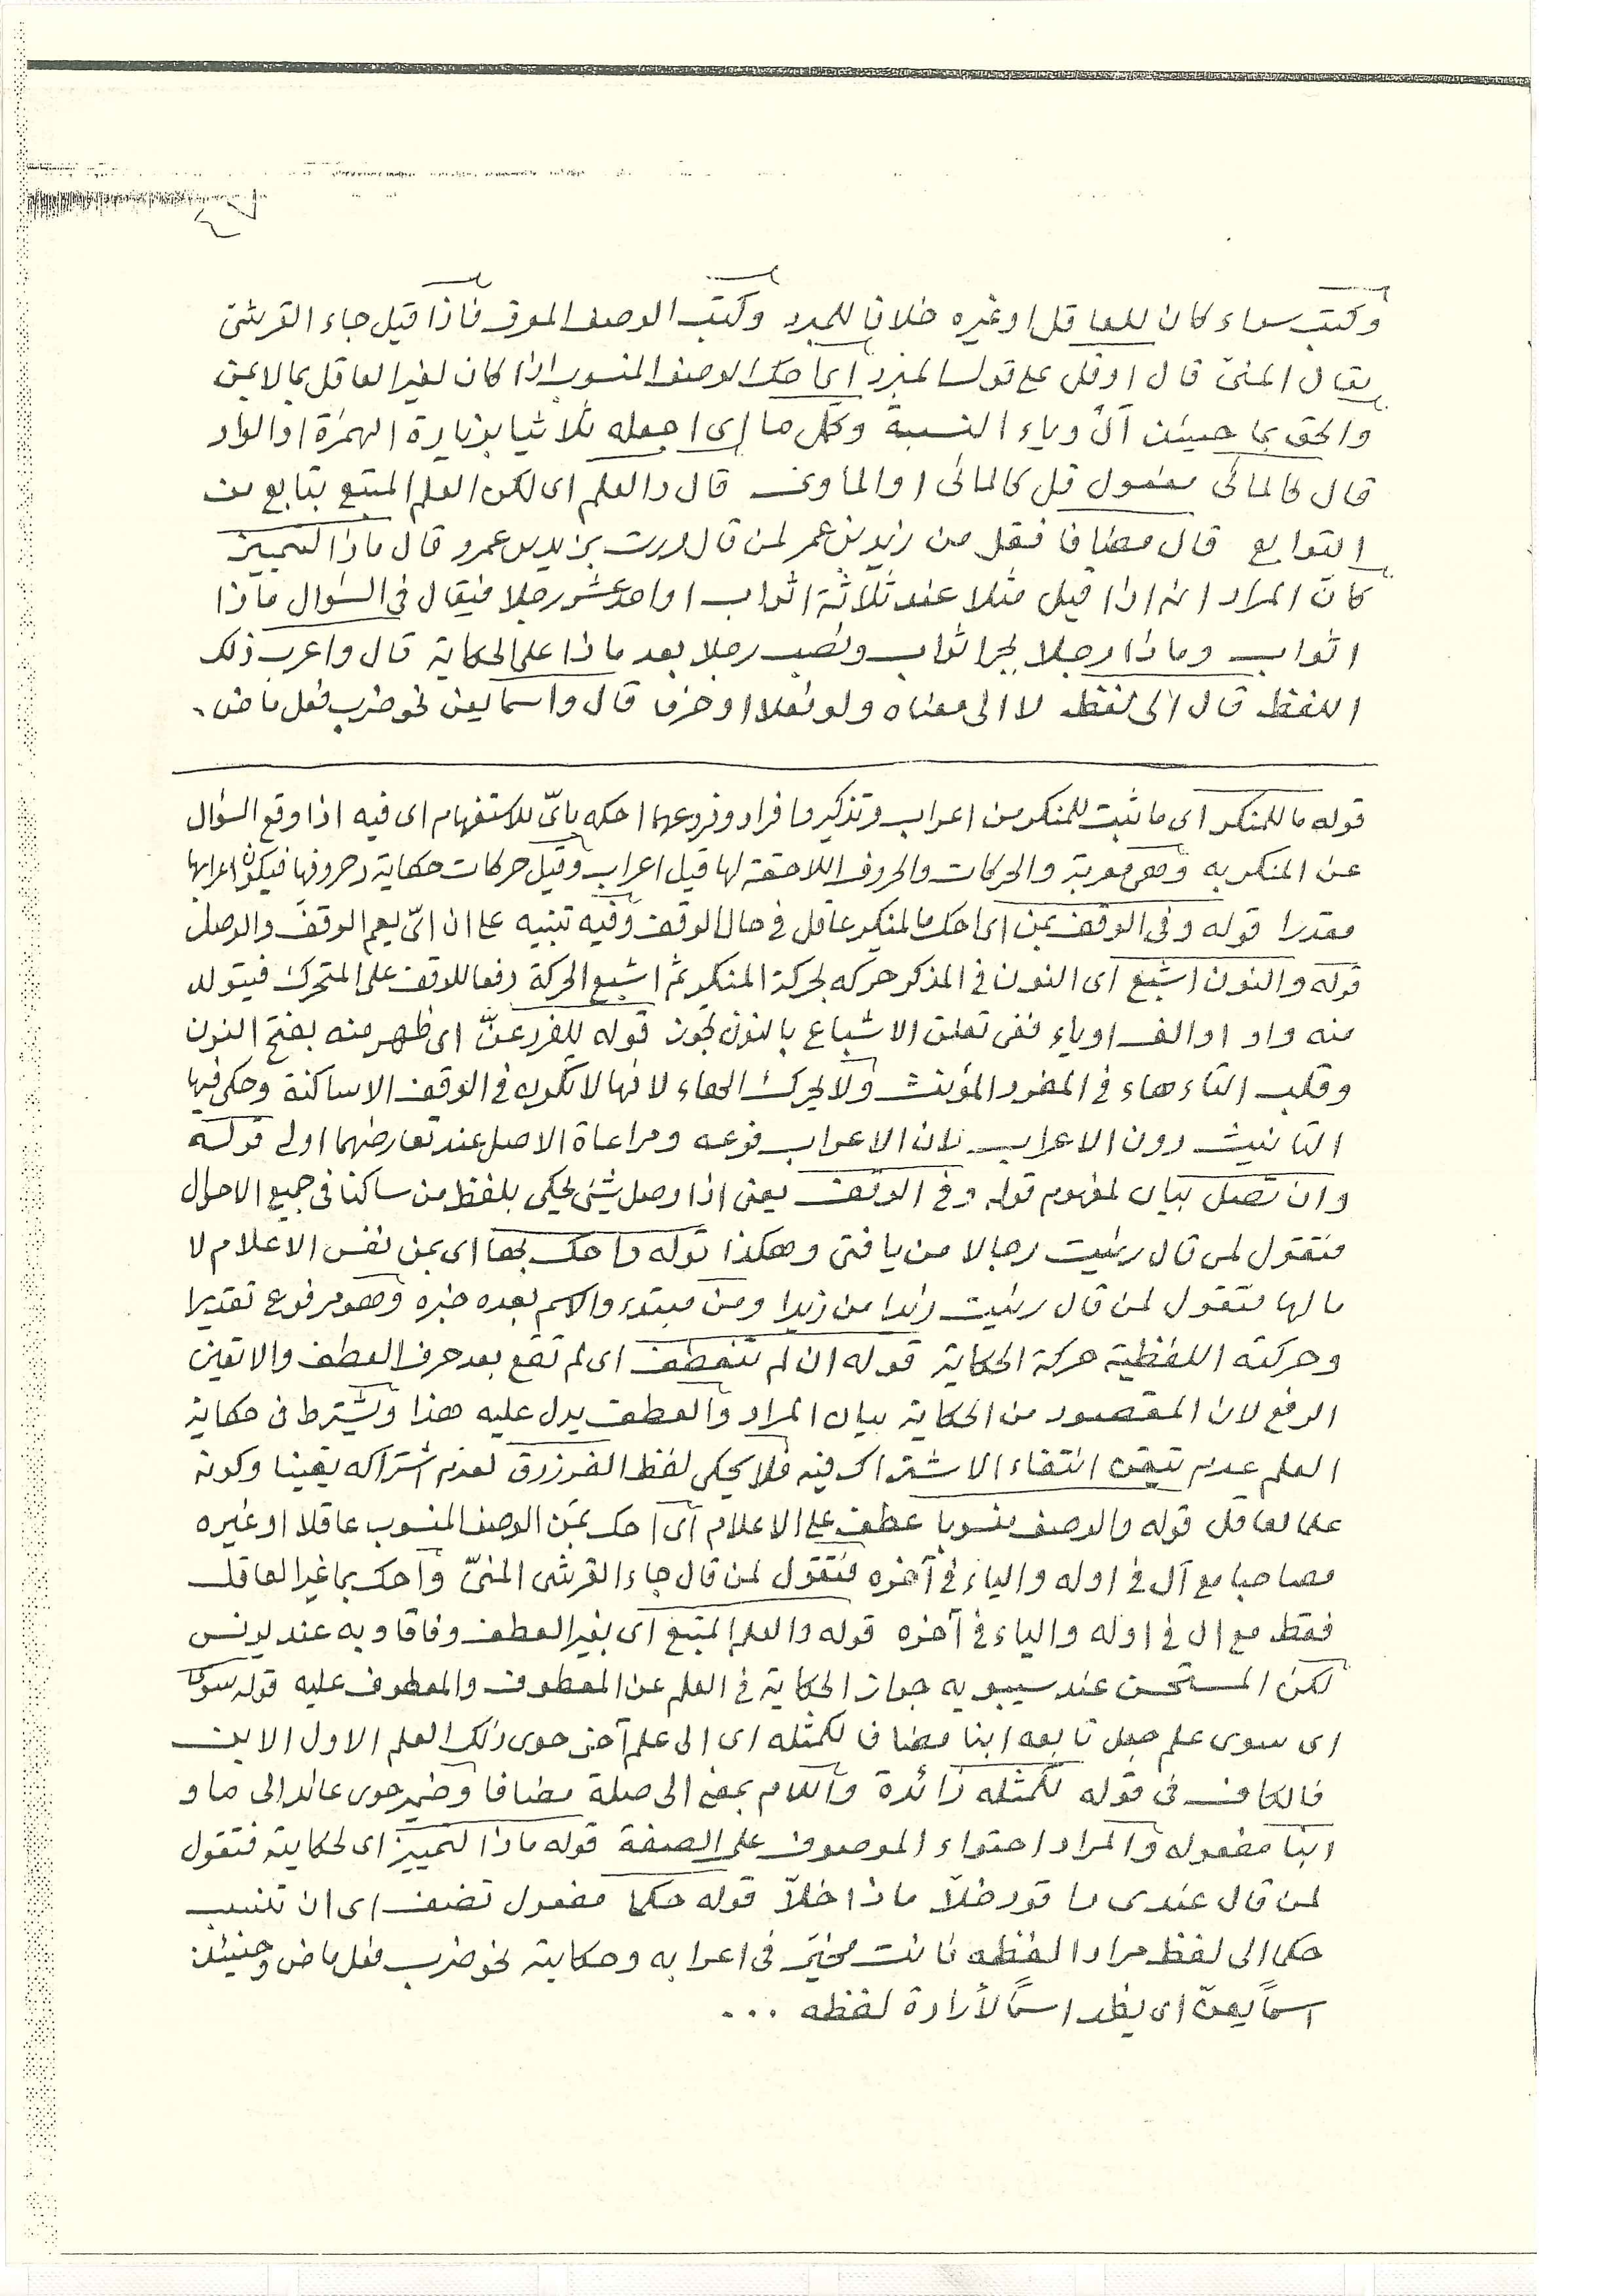 وكتب سواء كان للعاقل او غيره خلافا للمبرد وكتب الوصف الموقوف فاذا قيل جاء القرشي
يقال المنيّ قال او قل على قول المبرد اى احك الوصف المنسوب اذا كان لغير العاقل بما لا بمن
والحق بما حينئذ أل وياء النسبة وكمّل ما اى اجعله ثلاثيا بزيادة الهمزة او الواو
قال كالمائى مفعول قل كالمائى او الماوى قال والعلم اى لكن العلم المتبع بتابع من
التوابع قال مضافا فقل من زيد بن عمر لمن قال مررت بزيد بن عمرو قال ماذا التمييز
كان المراد انه اذا قيل مثلا عند ثلاثة اثواب او احد عشر رجلا فيقال فى السؤال ماذا
اثواب وماذا رجلا بجر اثواب ونصب رجلا بعد ماذا على الحكاية قال واعرب ذلك
اللفظ قال الى لفظ لا الى معناه ولو فعلا او حرف قال واسما يعن نحو ضرب فعل ماض.
قوله ما للمنكر اى ما ثبت للمنكر من اعراب وتذكير وافراد وفروعهما احكه باىّ للاستفهام اى فيه اذا وقع السؤال
عن المنكر به وهى معربة والحركات والحروف اللاحقة لها قيل اعراب وقيل حركات حكاية وحروفها فيكون اعرابها
مقدرا قوله وفى الوقف بمن اى احك ما لمنكر عاقل فى حال الوقف وفيه تنبيه على ان اىّ يعم الوقف والوصل
قوله والنون اشبع اى النون فى المذكر حركه بحركة المنكر ثم اشبع الحركة دفعا للوقف على المتحرك فيتولد
منه واو او الف او ياء ففى تعلق الاشباع بالنون تجوز قوله للفرد عنّ اى ظهر منه بفتح النون
وقلب التاء هاء فى المفرد المؤنث ولا يحرك الهاء لانها لا تكون فى الوقف الا ساكنة وحكى فيها
التانيث دون الاعراب لان الاعراب فرعه ومراعاة الاصل عند تعارضهما اولى قوله
وان تصل بيان لمفهوم قوله وفى الوقف يعنى اذا وصل شيئ يحكى بلفظ من ساكنا فى جميع الاحوال
فتقول لمن قال رئيت رجالا من يا فتى وهكذا قوله واحك بها اى بمن نفس الاعلام لا
ما لها فتقول لمن قال رئيت زيدا من زيدا ومن مبتدء والاسم بعده خبره وهو مرفوع تقديرا
وحركته اللفظية حركة الحكاية قوله ان لم تنعطف اى لم تقع بعد حرف العطف والا تعين
الرفع لان المقصود من الحكاية بيان المراد والعطف يدل عليه هذا ويشترط فى حكاية
العلم عدم تيقن انتفاء الاشتراك فيه فلا يحكى لفظ الفرزدق لعدم اشتراكه يقينا وكونه
علما لعاقل قوله والوصف منسوبا عطف على الاعلام اى احك بمن الوصف المنسوب عاقلا او غيره
مصاحبا مع أل فى اوله والياء فى آخره فتقول لمن قال جاء القرشى المنىّ واحك بما غير العاقل
فقط مع ال فى اوله والياء فى آخره قوله والعلم المتبع اى بغير العطف وفاقا وبه عند يونس
لكن المستحسن عند سيبويه جواز الحكاية فى العلم عن المعطوف والمعطوف عليه قوله سوى
اى سوى علم جعل تابعه ابنا مضاف لكمثله اى الى علم آخر حوى ذلك العلم الاول الابن
فالكاف فى قوله لكمثله زائدة واللام بمعنى الى صلة مضافا وضمير حوى عائد الى ما و
ابنا مفعوله والمراد احتواء الموصوف على الصفة قوله ماذا لتمييز اى لحكايته فتقول
لمن قال عندى راقود خلّا ماذا خلّا قوله حكما مفعول تضف اى ان تنسب
حكما الى لفظ مرادا لفظه فانت مخيّر فى اعرابه وحكايته نحو ضرب فعل ماض وحينئذ
اسمًا يعنّ اى يظهر اسمًا لأرادة لفظه ...